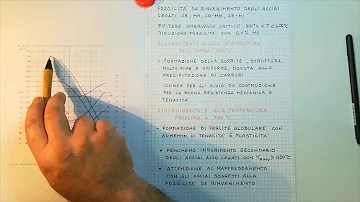 FRAGILITÀ DA RINVENIMENTO DEGLI ACCIAI
LEGATI CR, MN, CR-MN, CR-NI
EVITARE INTERVALLO CRITICO < T <
RIDUZIONE FRAGILITÀ CON 0,5% MO
RINVENIMENTO ALLA TEMPERATURA
• FORMAZIONE DELLA SORBITE, STRUTTURA
MOLTO FINE E UNIFORME, DOVUTA ALLA
PRECIPITAZIONE DI CARBURI
• OTTIMO PER GLI ACCIAI DA COSTRUZIONE
PER BUONA RESISTENZA MECCANICA E
TENACITÀ
RINVENIMENTO A ALTA TEMPERATURA
• FORMAZIONE DI PERLITE GLOBULARE CON
AUMENTO DI TENACITÀ E PLASTICITÀ
• FENOMENO INDURIMENTO SECONDARIO
DEGLI ACCIAI ALTO LEGATI CON
• ATTENZIONE AL RAFFREDDAMENTO
CON GLI ACCIAI SOGGETTI ALLA
FRAGILITÀ DA RINVENIMENTO